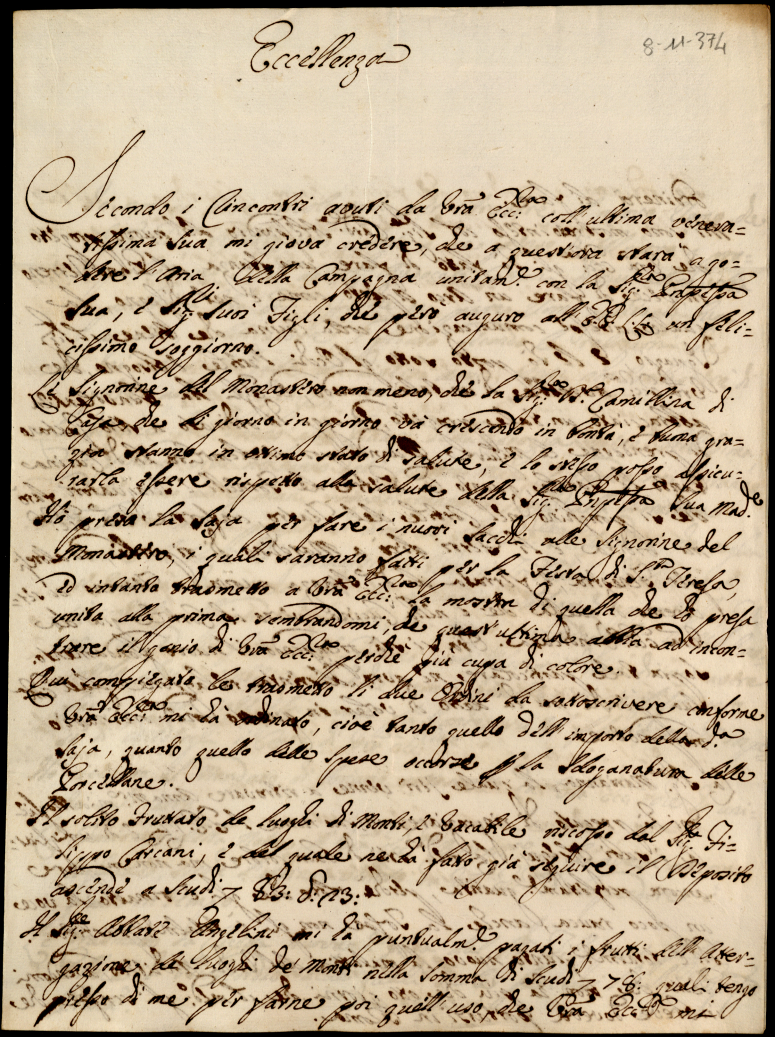 8-11-374
Eccellenza
Secondo i rincontri avuti da Vrã Ecc.za coll'ultima venera=
tissima sua mi giova credere, che a quest'ora stara a go=
dere l'Aria della Campagna unitam.e con la Sig.ra Prnpessa
sua, e Sig.ri suoi Figli, che però auguro all'EE. LL. un feli=
cissimo soggiorno.
Le Signorine del Monastero non meno, che la Sig.ra D. Camillina di
Casa, che di giorno in giorno và crescendo in bontà, e buona gra=
zia stanno in ottimo stato di salute, e lo stesso posso assicu=
rarla essere rispetto alla salute della Sig.ra Prnpessa sua Mad.e
Hò presa la saja per fare i nuovi sacchi alle Signorine del
Monastero, i quali saranno fatti per la Festa di S.ta Teresa,
ed intanto trasmetto a Vrã Ecc.za la mostra di quella che hò presa
unita alla prima, sembrandomi, che quest'ultima abbia ad incon=
trare il genio di Vrã Ecc.za perchè più cupa di colore.
Qui compiegato le trasmetto li due Ordini da sottoscrivere conforme
Vrã Ecc.za mi hà ordinato, cioè tanto quello dell'importo della d.a
saja, quanto quello delle spese occorse p la sdoganatura delle
Porcellane.
Il solito fruttato de luoghi di Monti, e Vacabile riscosso dal Sig.r Fi=
lippo Carcani, e del quale ne hà fatto già seguire il Deposito
ascende a Scudi 783: 13:
Il Sig.re Abbate Angelini mi hà puntualm.e pagati i frutti dell'Atter=
gazione de luoghi de Monti nella somma di Scudi 778: quali tengo
presso di me per farne poi quell'uso, che Vrã Ecc.za mi